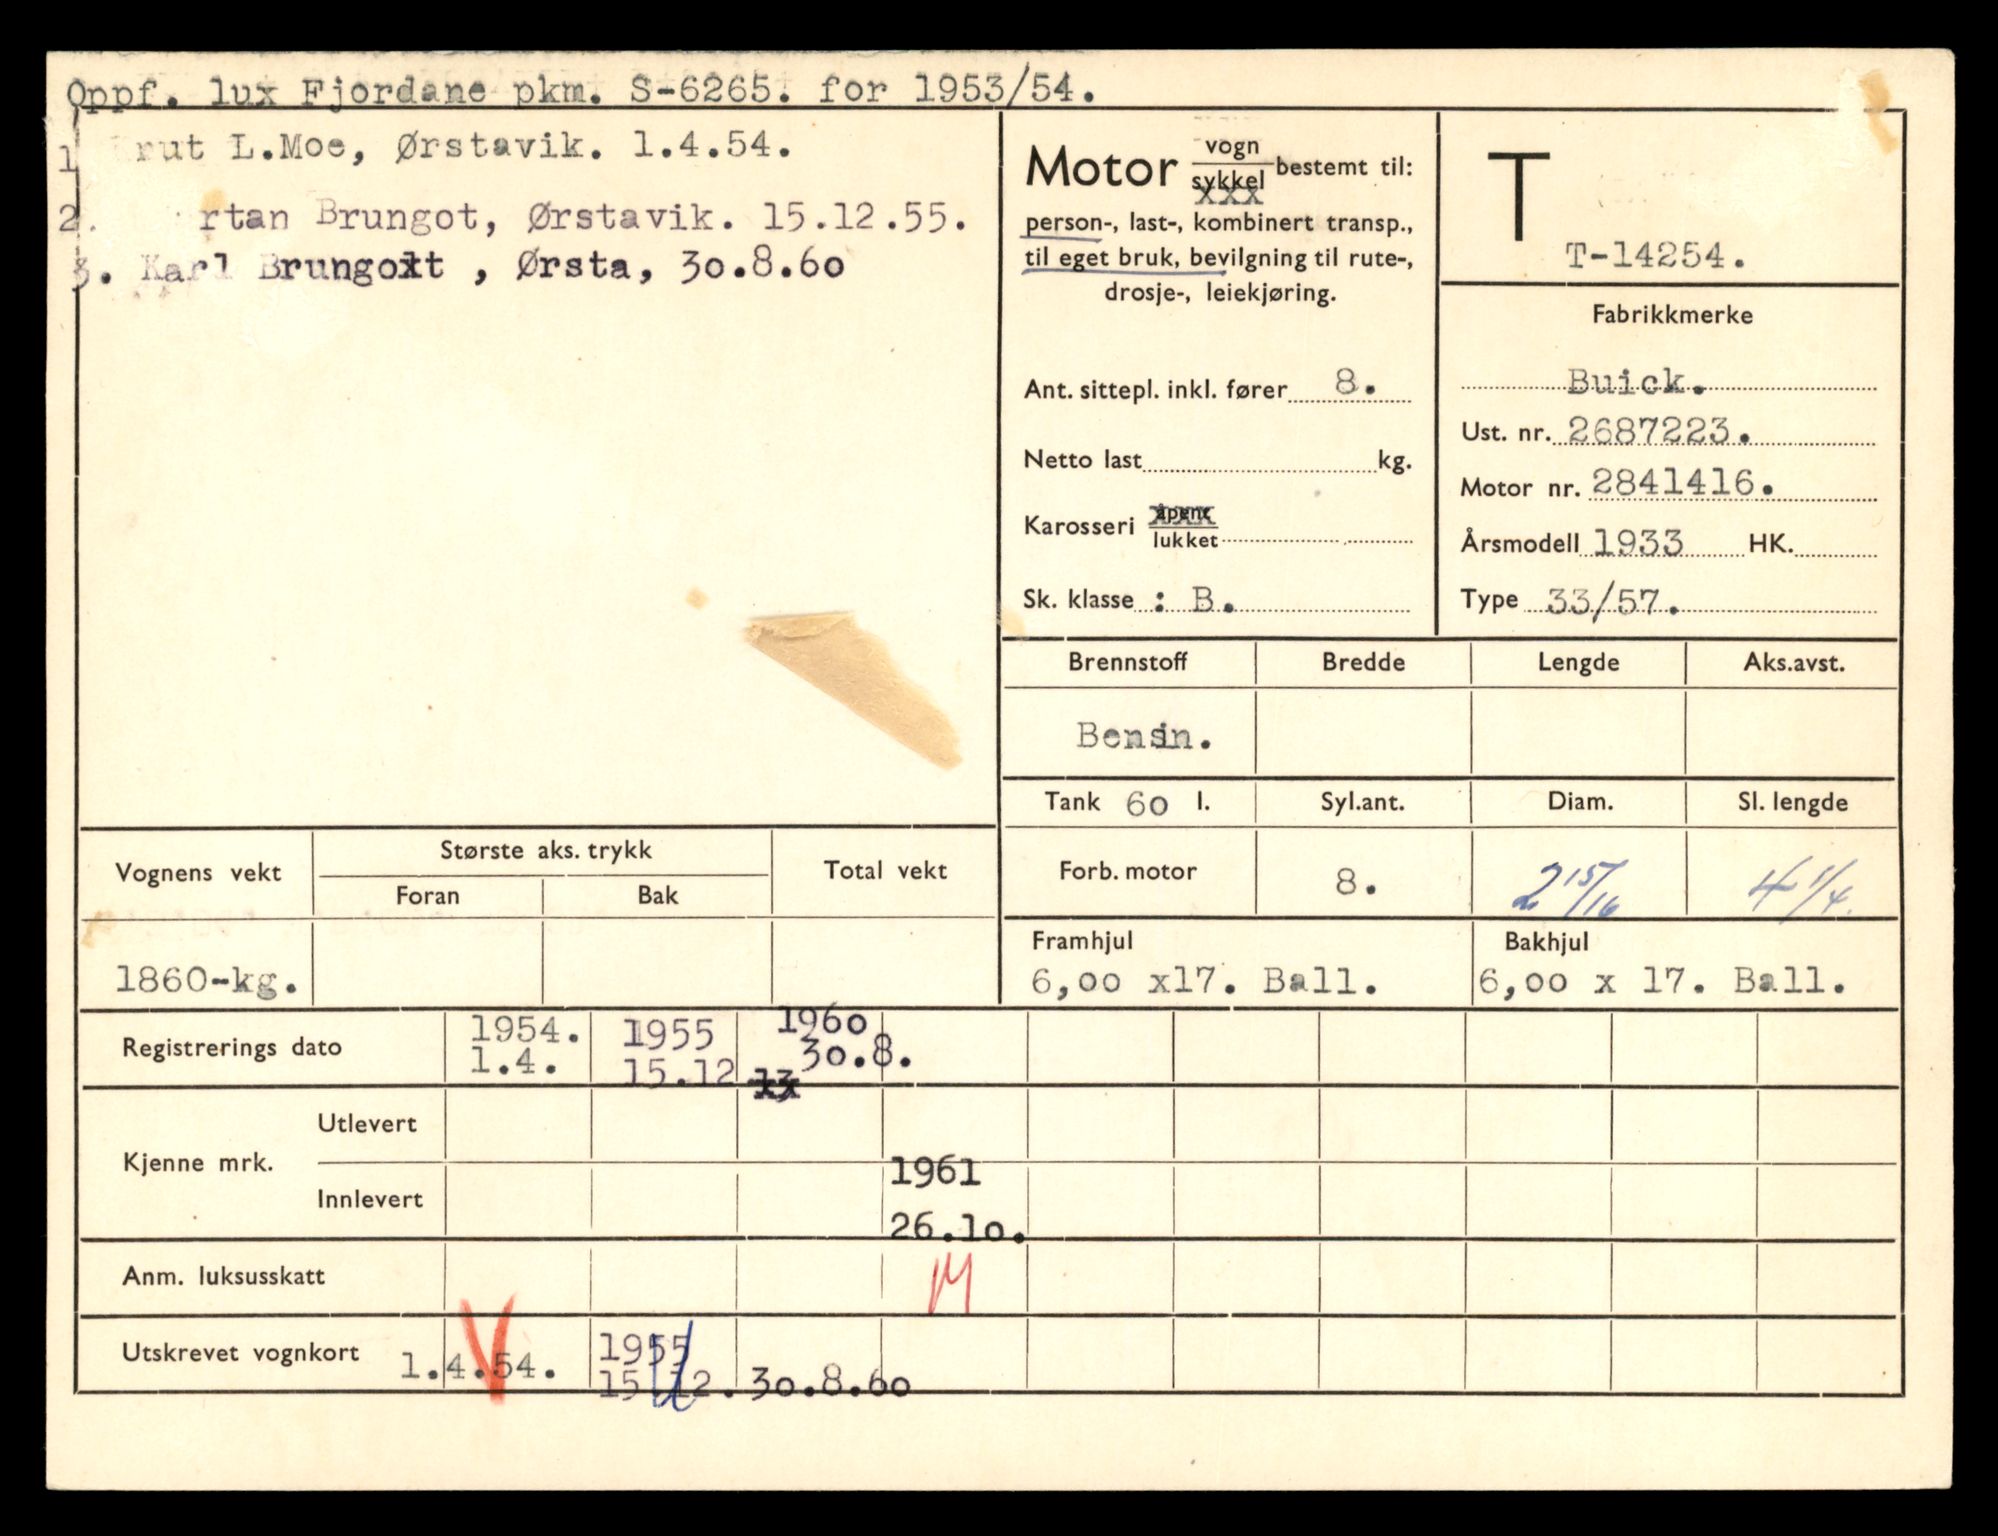 Oppf. lux Fjordane pkm. S-6265. for 1953/54.
1 rut L.Moe, Ørstavik. 1.4.54.
2. rtan Brungot, Ørstavik. 15.12.55.
3. Karl Brungot , Ørsta, 30.8.60
Motor vogn
sykkel
xxx
bestemt til:
person-, last-, kombinert transp.,
til eget bruk, bevilgning til rute-,
drosje-, leiekjøring.
Ant. sittepl. inkl. fører 8.
Netto last kg.
Karosseri åpent
lukket
Sk. klasse : B.
T
T-14254.
Fabrikkmerke
Buick.
Ust. nr. 2687223.
Motor nr. 2841416.
Årsmodell 1933 HK.
Type 33/57.
Brennstoff Bredde Lengde Aks.avst.
Bensin.
Tank 60 l. Syl.ant. Diam. Sl. lengde
Forb. motor 8. 2 15/16 4 1/4.
Framhjul Bakhjul
6,00 x17. Ball. 6,00 x 17. Ball.
Vognens vekt Største aks. trykk Total vekt
Foran Bak
1860-kg.
Registrerings dato 1954. 1955 1960
1.4. 15.12 30.8.
Kjenne mrk. Utlevert
Innlevert 1961
26.10.
Anm. luksusskatt
Utskrevet vognkort 1.4.54. 1955
15.12. 30.8.60